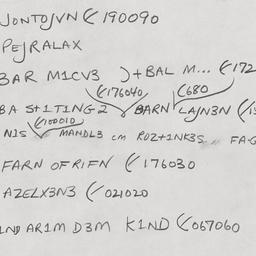 JONTOJVN (/ 190090
PEJRALAX
BAR M1CV3 )+BAL M... (/172
(/176040 (680
BA S+1T1NG2 BARN LAJN3N (/
(/100010
N1S MANDL3 cm ROZ+1NK3S FA-G
FARN OFRIFN (/ 176030
AZELX3N3 (/ 021020
IND AR1M D3M K1ND (/ 067060